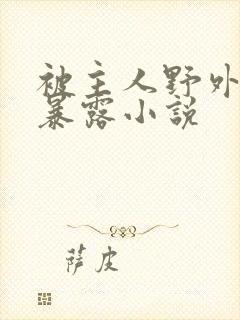 被主人野外
暴露小说
萨皮